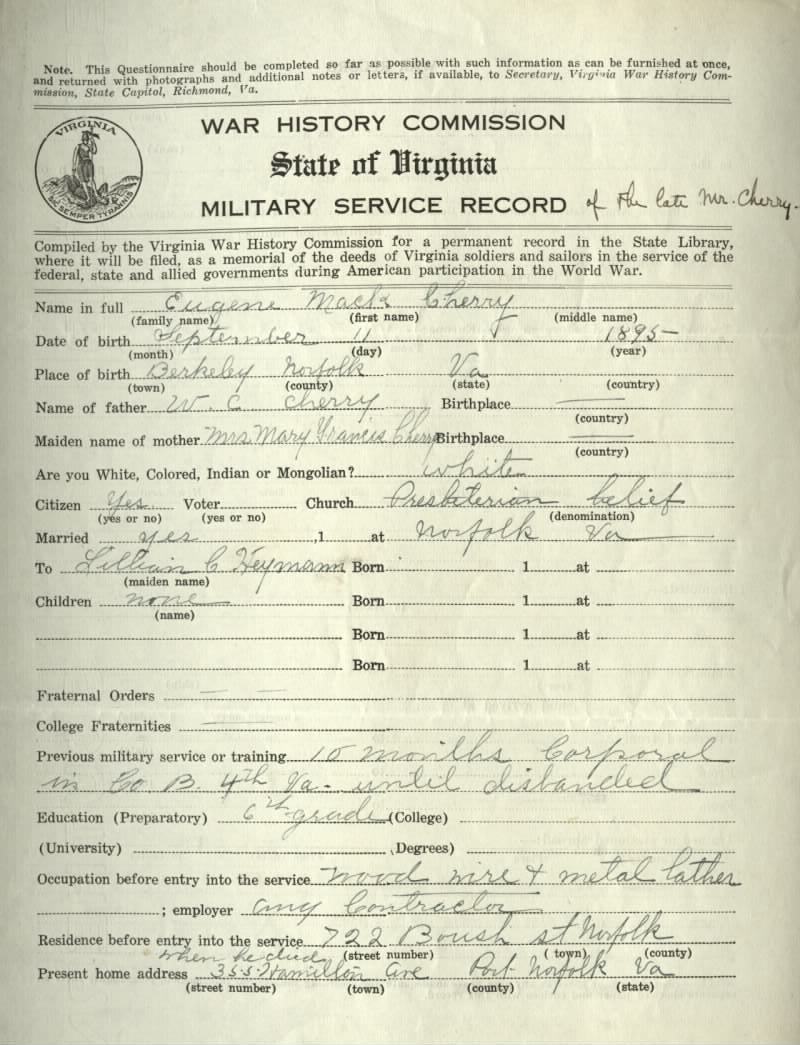 Note. This Questionnaire should be completed so far as possible with such information as can be furnished at once,
and returned with photographs and additional notes or letters, if available, to Secretary, Virginia War History Com-
mission, State Capitol, Richmond, Va.
VIRGINIA
SIC SEMPER TYRANNIS
WAR HISTORY COMMISSION
State of Virginia
MILITARY SERVICE RECORD of the late Mr. Cherry.
Compiled by the Virginia War History Commission for a permanent record in the State Library,
where it will be filed, as a memorial of the deeds of Virginia soldiers and sailors in the service of the
federal, state and allied governments during American participation in the World War.
Name in full Eugene Cherry
(family name) (first name) (middle name)
Date of birth September 11 1895
(month) (day) (year)
Place of birth Berkeley Norfolk Va
(town) (county) (state) (country)
Name of father W. C. Cherry Birthplace
(country)
Maiden name of mother Mrs. Mary Francis Cherry Birthplace
(country)
Are you White, Colored, Indian or Mongolian? white
Citizen Yes Voter Church Presbiterian belief
(yes or no) (yes or no) (denomination)
Married yes ,1 at Norfolk Va
To Lillian C Heymann Born 1 at
(maiden name)
Children none Born 1 at
(name)
Born 1 at
Born 1 at
Fraternal Orders
College Fraternities
Previous military service or training 10 months Corporal
in Co B. 4th Va. until disbanded
Education (Preparatory) 6th grade (College)
(University) (Degrees)
Occupation before entry into the service wood wire & metal lather
; employer any Contractor
Residence before entry into the service 722 Boush st Norfolk
when he died (street number) (town) (county)
Present home address 355 Hamilton ave Port Norfolk Va
(street number) (town) (county) (state)